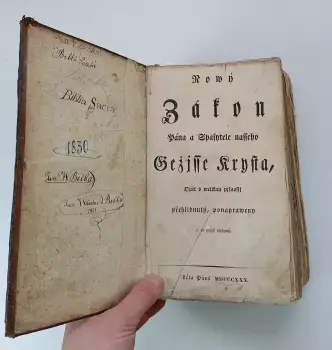 Biblia Sacra
1830
Jan W. Bečka
Jan Bečka
Nowý
Zákon
Pána a Spasytele nasseho
Gežisse Krysta,
Opět s welikau pilností
přehlídnutý, ponaprawený
Léta Páně MDCCCXXX.